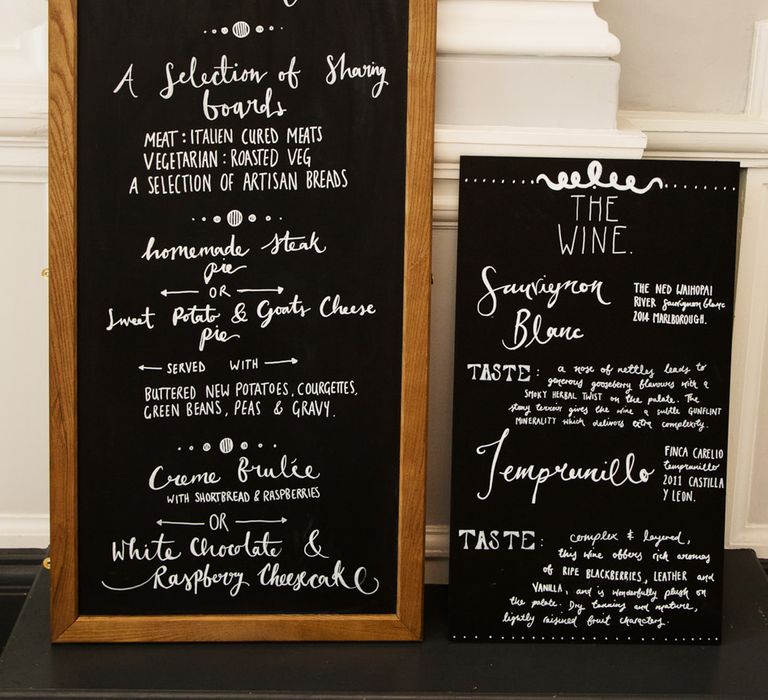 A Selection of Sharing
boards
MEAT : ITALIEN CURED MEATS
VEGETARIAN : ROASTED VEG
A SELECTION OF ARTISAN BREADS
homemade steak
pie
OR
Sweet Potato & Goats Cheese
pie
SERVED WITH
BUTTERED NEW POTATOES, COURGETTES,
GREEN BEANS, PEAS & GRAVY.
Creme Brulée
WITH SHORTBREAD & RASPBERRIES
OR
White Chocolate &
Raspberry Cheesecake
THE
WINE.
Sauvignon
Blanc
THE NED WAIHOPAI
RIVER Sauvignon blanc
2014 MARLBOROUGH.
TASTE: a nose of nettles leads to
generous gooseberry flavours with a
SMOKY HERBAL TWIST on the palate. The
stony terroir gives the wine a subtle GUNFLINT
MINERALITY which delivers extra complexity.
Tempranillo
FINCA CARELIO
tempranillo
2011 CASTILLA
Y LEON.
TASTE: complex & layered,
this wine offers rich aromas
of RIPE BLACKBERRIES, LEATHER and
VANILLA, and is wonderfully plush on
the palate. Dry tannins and mature,
lightly raisined fruit characters.